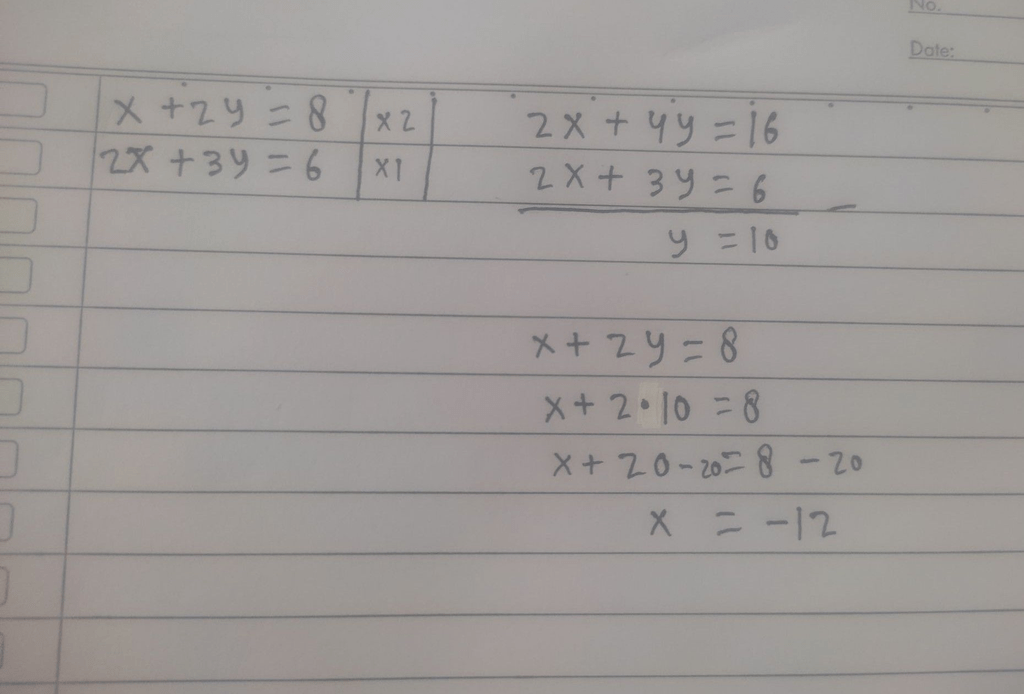 No.
Date:
x + 2y = 8 | x2 | 2x + 4y = 16
2x + 3y = 6 | x1 | 2x + 3y = 6 –
y = 10
x + 2y = 8
x + 2 • 10 = 8
x + 20 - 20 = 8 - 20
x = -12